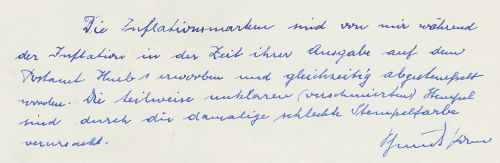 Die Inflationsmarken sind von mir während
der Inflation in der Zeit ihrer Ausgabe auf dem
Postamt erworben und gleichzeitig abgestempelt
worden. Die teilweise unklaren (verschmierten) Stempel
sind durch die damalige schlechte Stempelfarbe
verursacht.